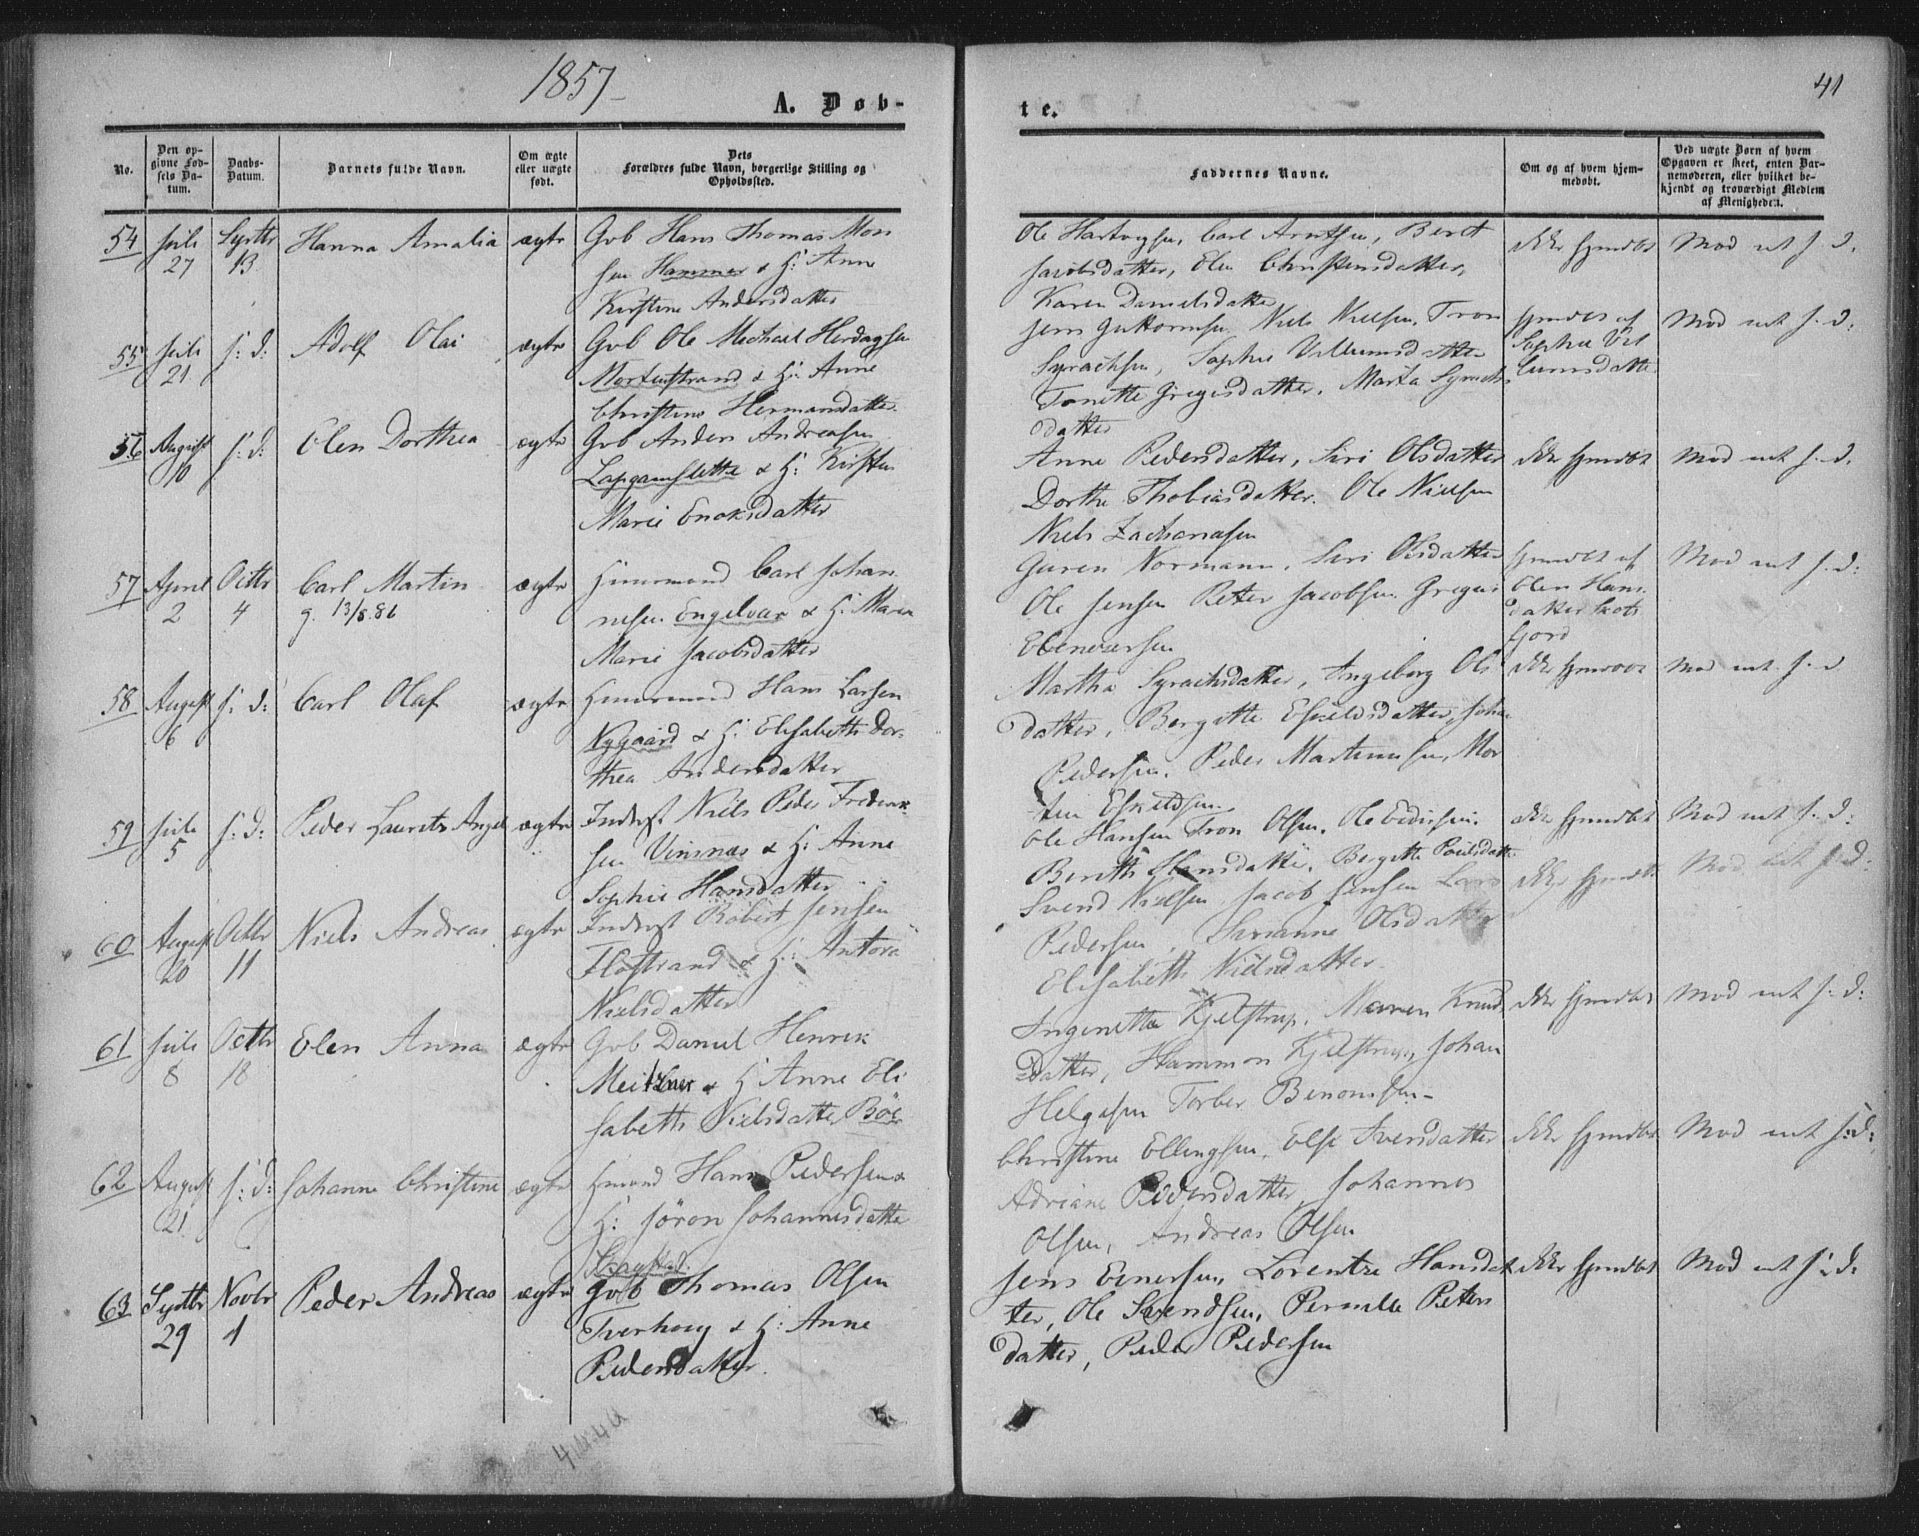 1857
A. Døb-
te.
41
No.
Den op-
givne Fød-
sels Da-
tum.
Daabs-
Datum.
Barnets fulde Navn.
Om ægte
eller uægte
født.
Dets
Forældres fulde Navn, borgerlige Stilling og
Opholdssted.
Faddernes Navne.
Om og af hvem hjem-
medøbt.
Ved uægte Børn af hvem
Opgaven er skeet, enten Bar-
nemoderen, eller hvilket be-
kjendt og troværdigt Medlem
af Menigheden.
54 Juli 27 Septbr 13 Hanna Amalia ægte Gvb Hans Thomas Mon
sen Hammer & H: Anne
Kirstine Andersdatter
Ole Hartvigsen, Carl Arntsen, Beret
Jacobsdatter, Elen Christensdatter,
Karen Danielsdatter
ikke hjmdbt
Mod int s. d.
55 Juli 21 s: d: Adolf Olai ægte Gvb Ole Michael Herdagsen
Mortenstrand & H: Anne
Christine Hermansdatter
Jens Guttormsen, Niels Nielsen, Tron
Syrachsen, Sophie Villumsdatter
Tonette Gregersdatter, Marta Syrachs
datter
hjmdbt af
Sophie Vil
lumsdatter
Mod int s. d:
56 August 10 s: d: Elen Dorthea ægte Gvb Anders Andreasen
& H: Kirsten
Marie Enoksdatter
Anne Pedersdatter, Siri Olsdatter
Dorthe Thobiasdatter, Ole Nielsen
Niels Zachariasen
ikke hjmdbt
Mod int s. d.
57 April 2 Octbr 4 Carl Martin ægte
g. 13/8.86
Huusmand Carl Johan
nesen Engelvær & H: Maren
Marie Jacobsdatter
Normann, Siri Olsdatter
Ole Jensen Peter Jacobsen Gregus
Ebenversen
hjmdbt af
Elen Hans
datter
fjord
Mod int s. d:
58 August 6 s: d: Carl Olaf ægte Huusmand Hans Larsen
Nygaard & H: Elisabeth Dor-
thea Andersdatter
Martha Syrachsdatter, Ingeborg Ols
datter, Bergitte Eskildsdatter, Johan
Pedersen, Peder Martinusen, Mor
ten Eskildsen
ikke hjmdbt
Mod int s. d
59 Juli 5 s: d: Peder Laurits Angel ægte Inderst Niels Peder Frederik
sen Vinsnes & H: Anne
Sophie Hansdatter
Ole Hansen Tron Olsen, Ole
Bereth Hansdatter, Bergitte Poulsdatter
ikke hjmdbt
Mod int s. d:
60 August 20 Octbr 11 Niels Andreas ægte Inderst Robert Jensen
Flostrand & H: Antora
Nielsdatter
Svend Nielsen Jacob Jensen Lars
Pedersen, Sirianne Olsdatter
Elisabeth Nielsdatter
ikke hjmdbt
Mod int s. d:
61 Juli 8 Octbr 18 Elen Anna ægte Gvb Daniel Henrik
Meitzner & H: Anne Eli
sabeth Nielsdatter Bøe
Ingenette Kjelstrup, Maren Knuds
datter, Hammon Kjelstrup, Johan
Helgesen Torber Benonisen
ikke hjmdbt
Mod int s: d:
62 August 21 s: d: Johanne Christine ægte Hmand Hans Pedersen &
H: Søren Johannesdatter
Christine Ellingsen, Else Iversdatter
Adriane Pedersdatter, Johannes
Olsen, Andreas Olsen
ikke hjmdbt
Mod int s: d:
63 Septbr 29 Novbr 1 Peder Andreas ægte Gvb Thomas Olsen
Tverhoug & H: Anne
Pedersdatter.
Jens Einersen, Lorentze Hansdat
ter, Ole Svendsen, Pernille Peters
datter, Peder Pedersen
ikke hjmdbt
Mod int s: d: